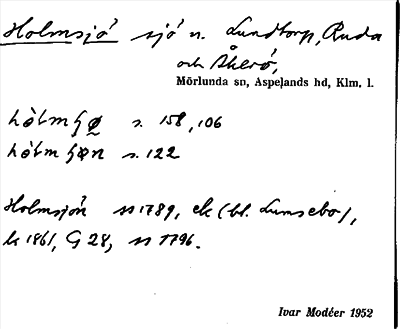 Holmsjö sjö n. Lundtorp, Ruda
och Åkerö,
Mörlunda sn, Aspelands hd, Klm. l.
s. 158, 106
s. 122
Holmsjön 1789, ek (bl. Lunsebo),
k 1861, G 28, 1796.
Ivar Modéer 1952